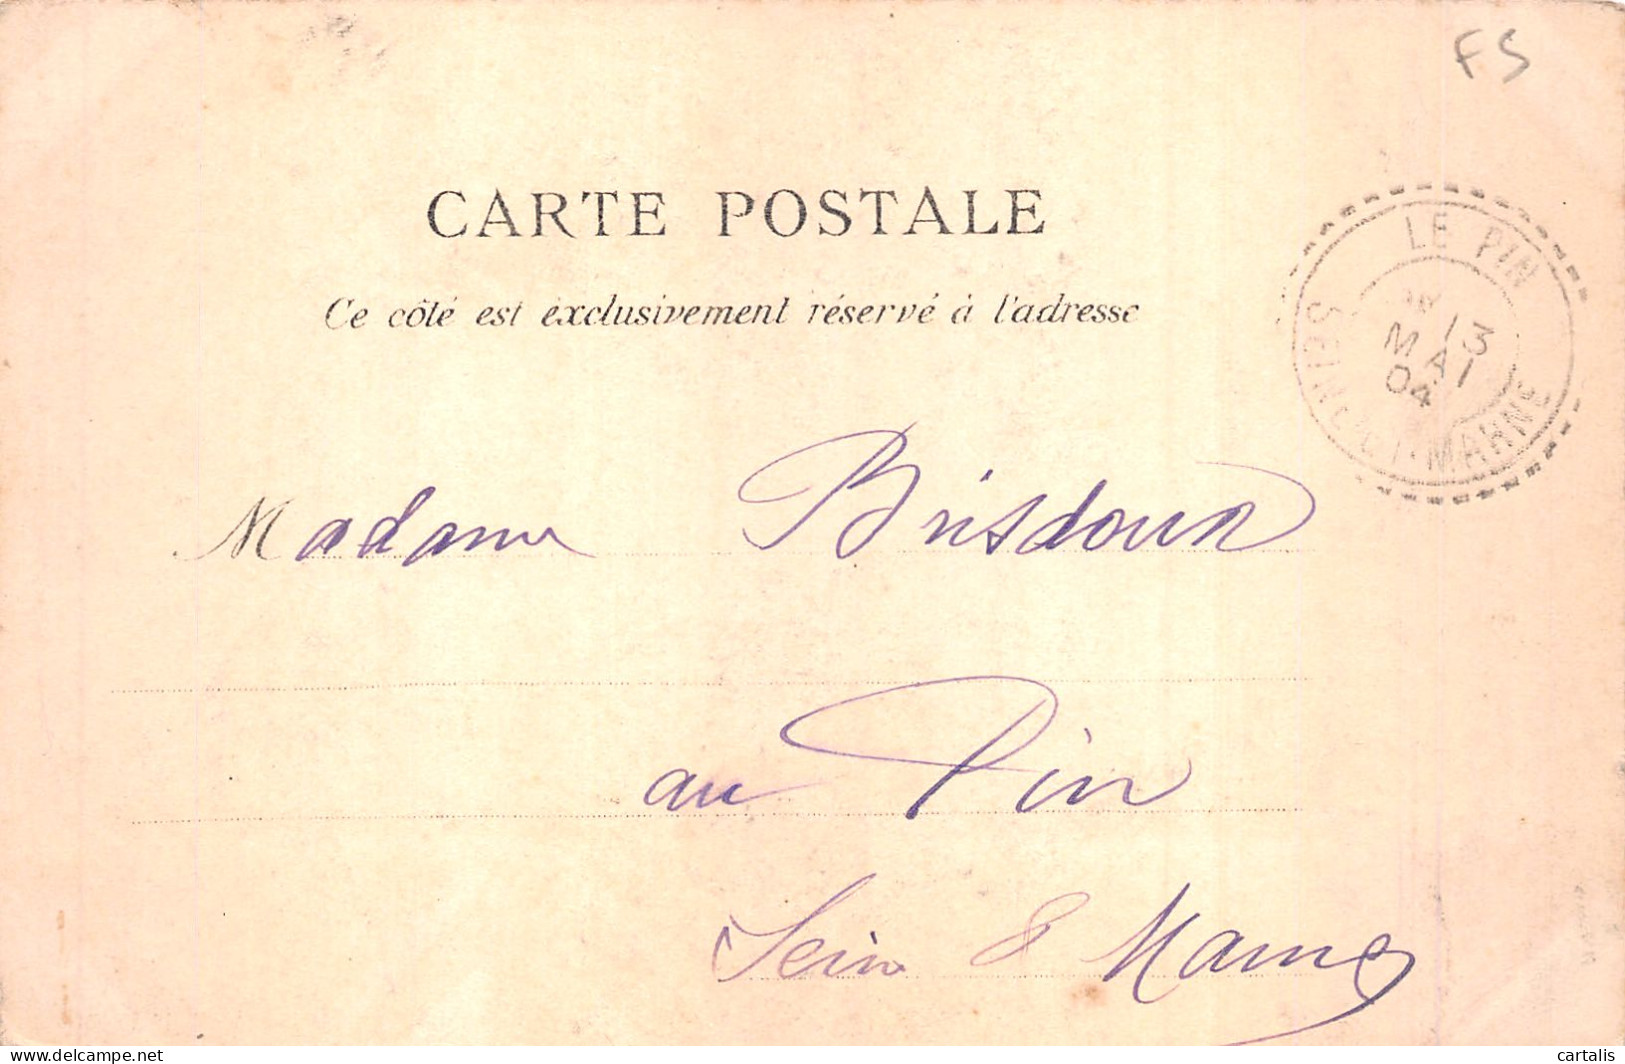 FS
CARTE POSTALE
Ce côté est exclusivement réservé à l'adresse
LE PIN
13
MAI
04
SEINE-ET-MARNE
Madame Brisdoux
au Pin
Seine & Marne
delcampe.net
cartalis